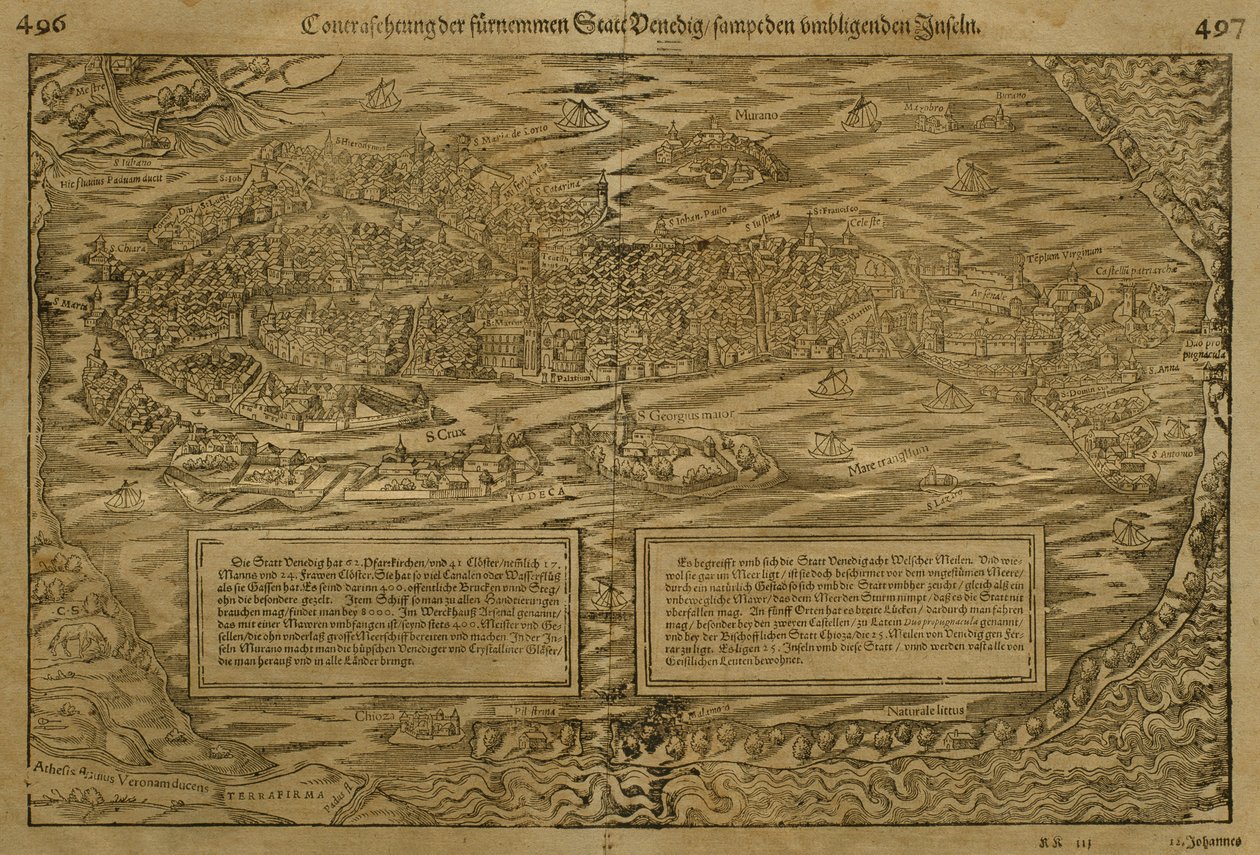 496
Contrafehtung der fürnemmen Statt Venedig/ sampt den vmbligenden Inseln.
497
Mestre
S Iuliano
Hic fluuius Paduam ducit
S. Iob
S Hieronymus
S Maria de Lorto
S Catarina
Murano
Mazobro
Burano
S Iohan. Paulo
S Iustina
S: Francisco
Celeste
S Chiara
S Marta
S: Marco
Palatium
Arsenale
Tẽplum Virginum
Castellũ patriarchæ
Duo pro
pugnacula
S. Anna
S: Domin
S Antonio
S Crux
S Georgius maior
Mare tranqillum
S Lazro
IVDECA
Die Statt Venedig hat 62. Pfarrkirchen/ vnd 41 Clöster/ nem̃lich 17.
Manns vnd 24. Frawen Clöster. Sie hat so viel Canalen oder Wasserflüß
als sie Gassen hat. Es seind darinn 400. offentliche Brucken vnnd Steg/
ohn die besondere gezelt. Item Schiff so man zu allen Handtierungen
brauchen mag/ findet man bey 8000. Im Werckhauß Arsenal genannt/
das mit einer Mawren vmbfangen ist/ seynd stets 400. Meister vnd Ge-
sellen/ die ohn vnderlaß grosse Meerschiff bereiten vnd machen. In der In-
seln Murano macht man die hüpschen Venediger vnd Crystalliner Gläser/
die man herauß vnd in alle Länder bringt.
Es begreifft vmb sich die Statt Venedig acht Welscher Meilen. Vnd wie-
wol sie gar im Meer ligt/ ist sie doch beschirmet vor dem vngestümen Meere/
durch ein natürlich Gestad so sich vmb die Statt vmbher zeucht/ gleich alß ein
vnbewegliche Mawr/ das dem Meer den Sturm nimpt/ daß es die Statt nit
vberfallen mag. An fünff Orten hat es breite Lücken/ dardurch man fahren
mag/ besonder bey den zweyen Castellen/ zu Latein Duo propugnacula genannt/
vnd bey der Bischofflichen Statt Chioza/ die 25. Meilen von Venedig gen Fer-
rar zu ligt. Es ligen 25. Inseln vmb diese Statt/ vnnd werden vast alle von
Geistlichen Leuten bewohnet.
C·S
Chioza
Pilstrina
Malamoco
Naturale littus
Athesis fluuius Veronam ducens
TERRAFIRMA
Padus fl.
KK iij
12. Johannes